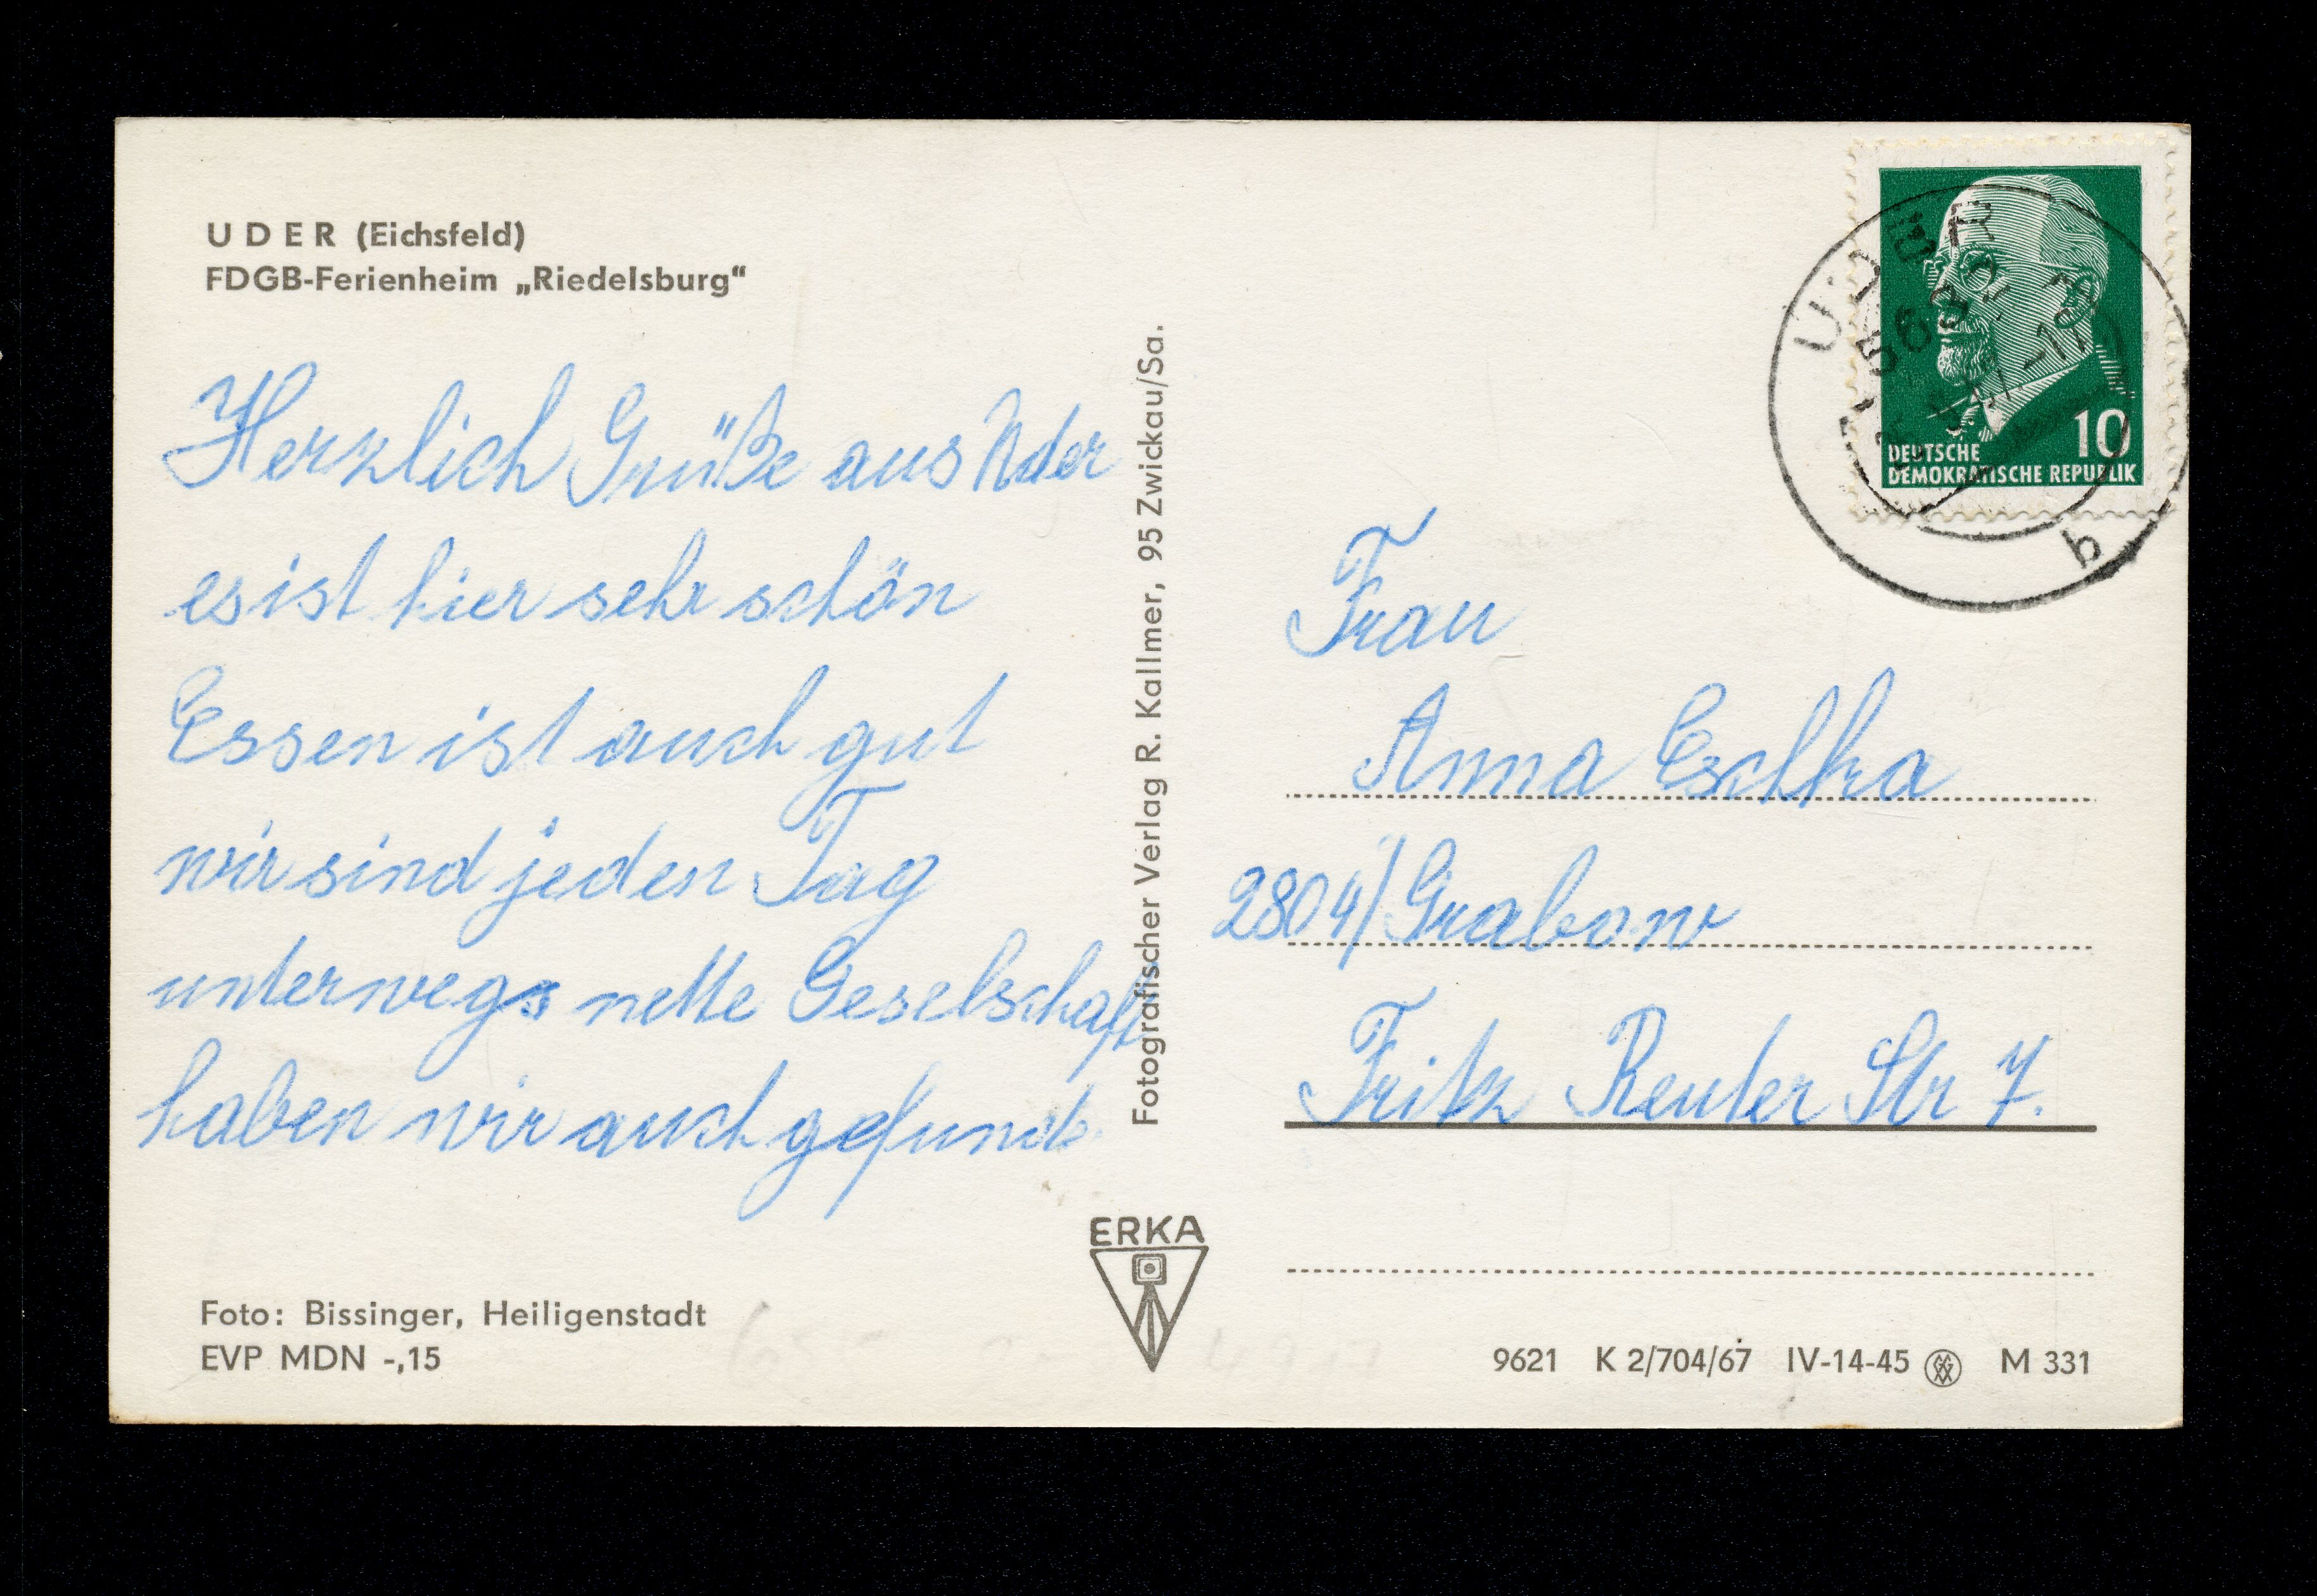 U D E R (Eichsfeld)
FDGB-Ferienheim „Riedelsburg“
Herzlich Grüße aus Uder
es ist hier sehr schön
Essen ist auch gut
wir sind jeden Tag
unterwegs nette Geselschaft
haben wir auch gefund.
Foto: Bissinger, Heiligenstadt
EVP MDN -,15
Fotografischer Verlag R. Kallmer, 95 Zwickau/Sa.
ERKA
UDER
b
10
DEUTSCHE
DEMOKRATISCHE REPUBLIK
Frau
Anna
2804/Grabow
Fritz Reuter Str 7.
9621 K 2/704/67 IV-14-45 M 331